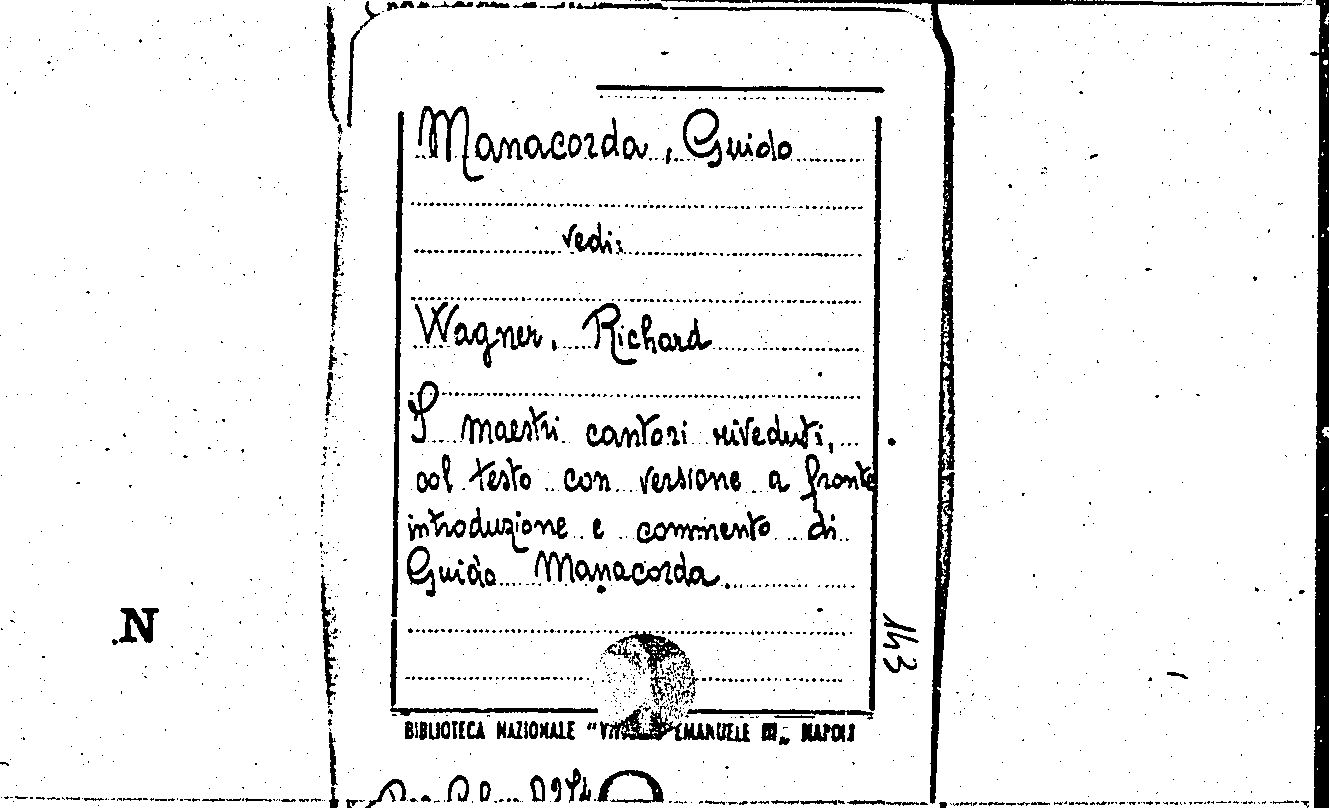 Manacorda, Guido
vedi:
Wagner, Richard
I maestri cantori riveduti,
col testo con versione a fronte
introduzione e commento di
Guido Manacorda
143
N
BIBLIOTECA NAZIONALE " EMANUELE III„ NAPOLI